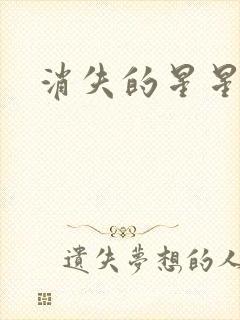 消失的星星
遺失夢想的人